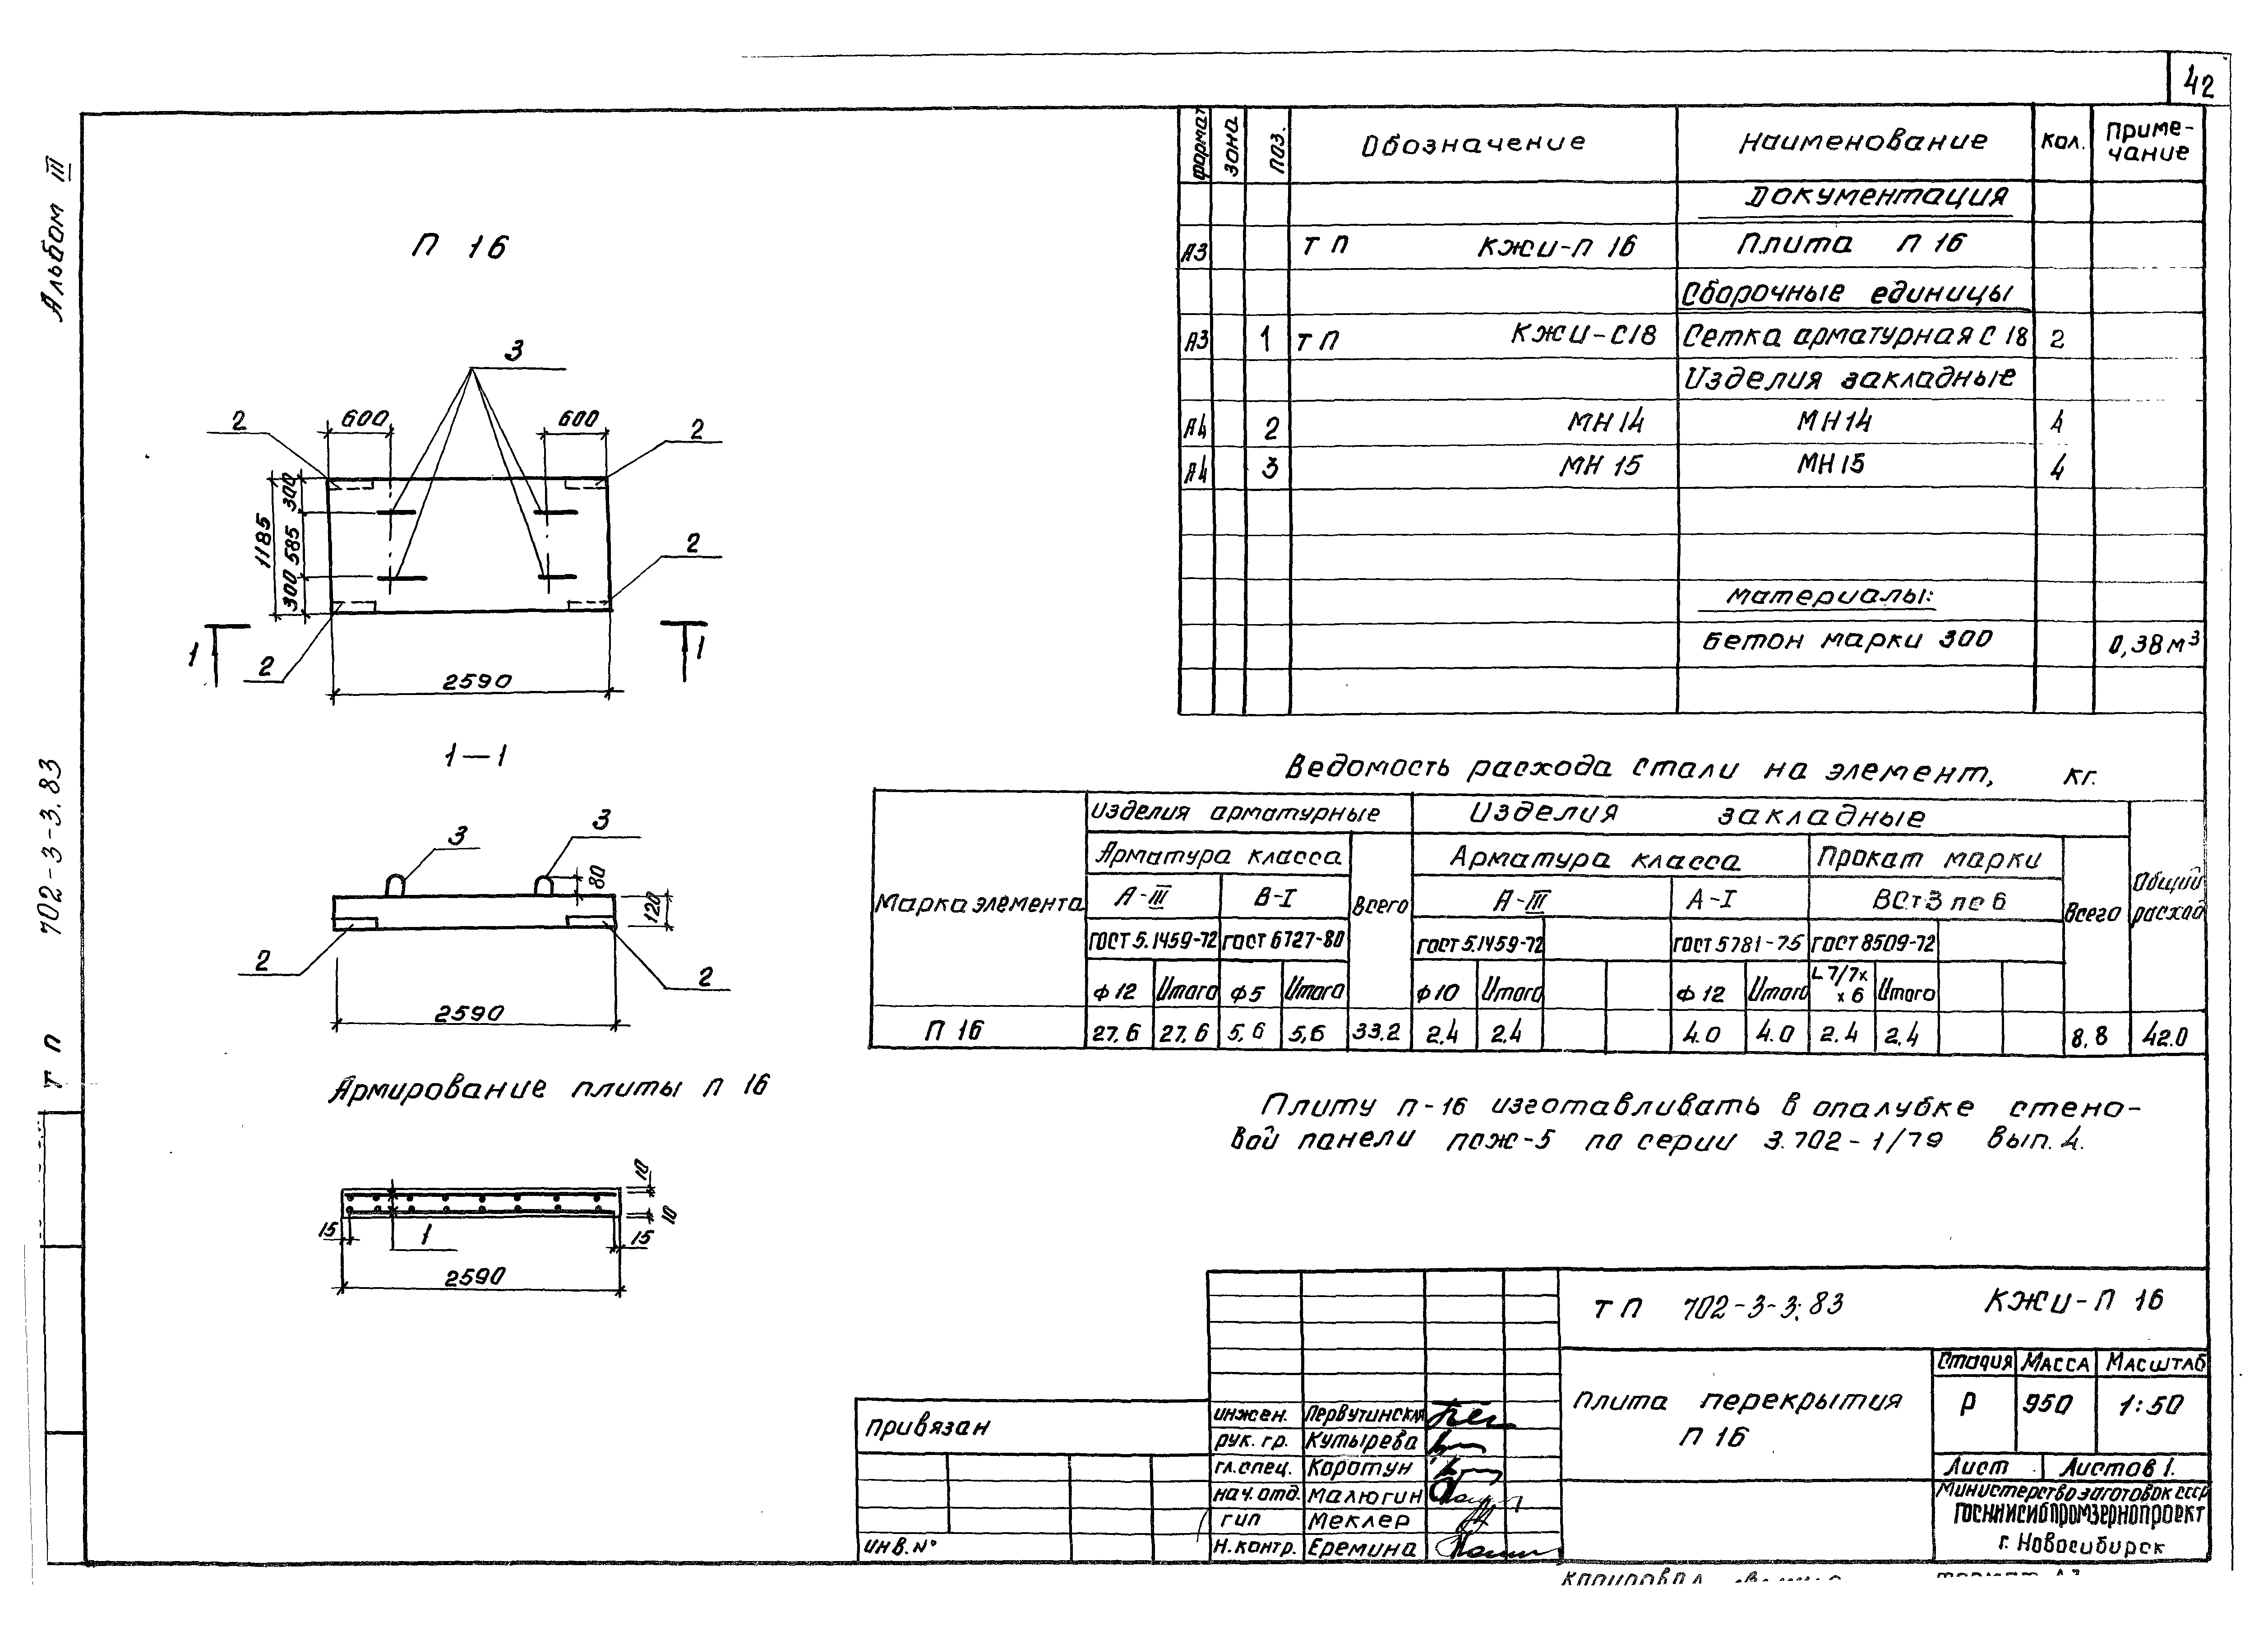 42
Альбом III
702-3-3.83
Т П
П 16
3
2
600
600
2
300
585
300
1185
2
2
1
1
2590
1—1
3
3
80
120
2
2
2590
Армирование плиты п 16
10
10
15
1
15
2590
формат зона поз. Обозначение Наименование кол. Приме-
чание
Документация
А3 ТП КЖИ-П 16 Плита П 16
Сборочные единицы
А3 1 ТП КЖИ-С18 Сетка арматурная С 18 2
Изделия закладные
А4 2 МН14 МН14 4
А4 3 МН 15 МН15 4
материалы:
Бетон марки 300 0,38 м³
Ведомость расхода стали на элемент, кг.
Марка элемента Изделия арматурные Изделия закладные Общий расход
Арматура класса Всего Арматура класса Прокат марки Всего
А-III В-I А-III А-I ВСт3 пс 6
ГОСТ 5.1459-72 ГОСТ 6727-80 ГОСТ 5.1459-72 ГОСТ 5781-75 ГОСТ 8509-72
ф12 Итого ф5 Итого ф10 Итого ф12 Итого L 7/7х
х 6 Итого
П 16 27,6 27,6 5,6 5,6 33.2 2.4 2.4 4.0 4.0 2.4 2.4 8.8 42.0
Плиту п-16 изготавливать в опалубке стено-
вой панели псж-5 по серии 3.702-1/79 Вып. 4.
ТП 702-3-3.83 КЖИ-П 16
Плита перекрытия
П 16
Стадия Масса Масштаб
Р 950 1:50
Лист Листов 1.
Министерство заготовок СССР
ГОСНИИСИБПРОМЗЕРНОПРОЕКТ
г. Новосибирск
инжен. Первутинская
рук. гр. Кутырева
гл. спец. Коротун
нач. отд. Малюгин
гип Меклер
Н.контр. Еремина
Привязан
инв. №